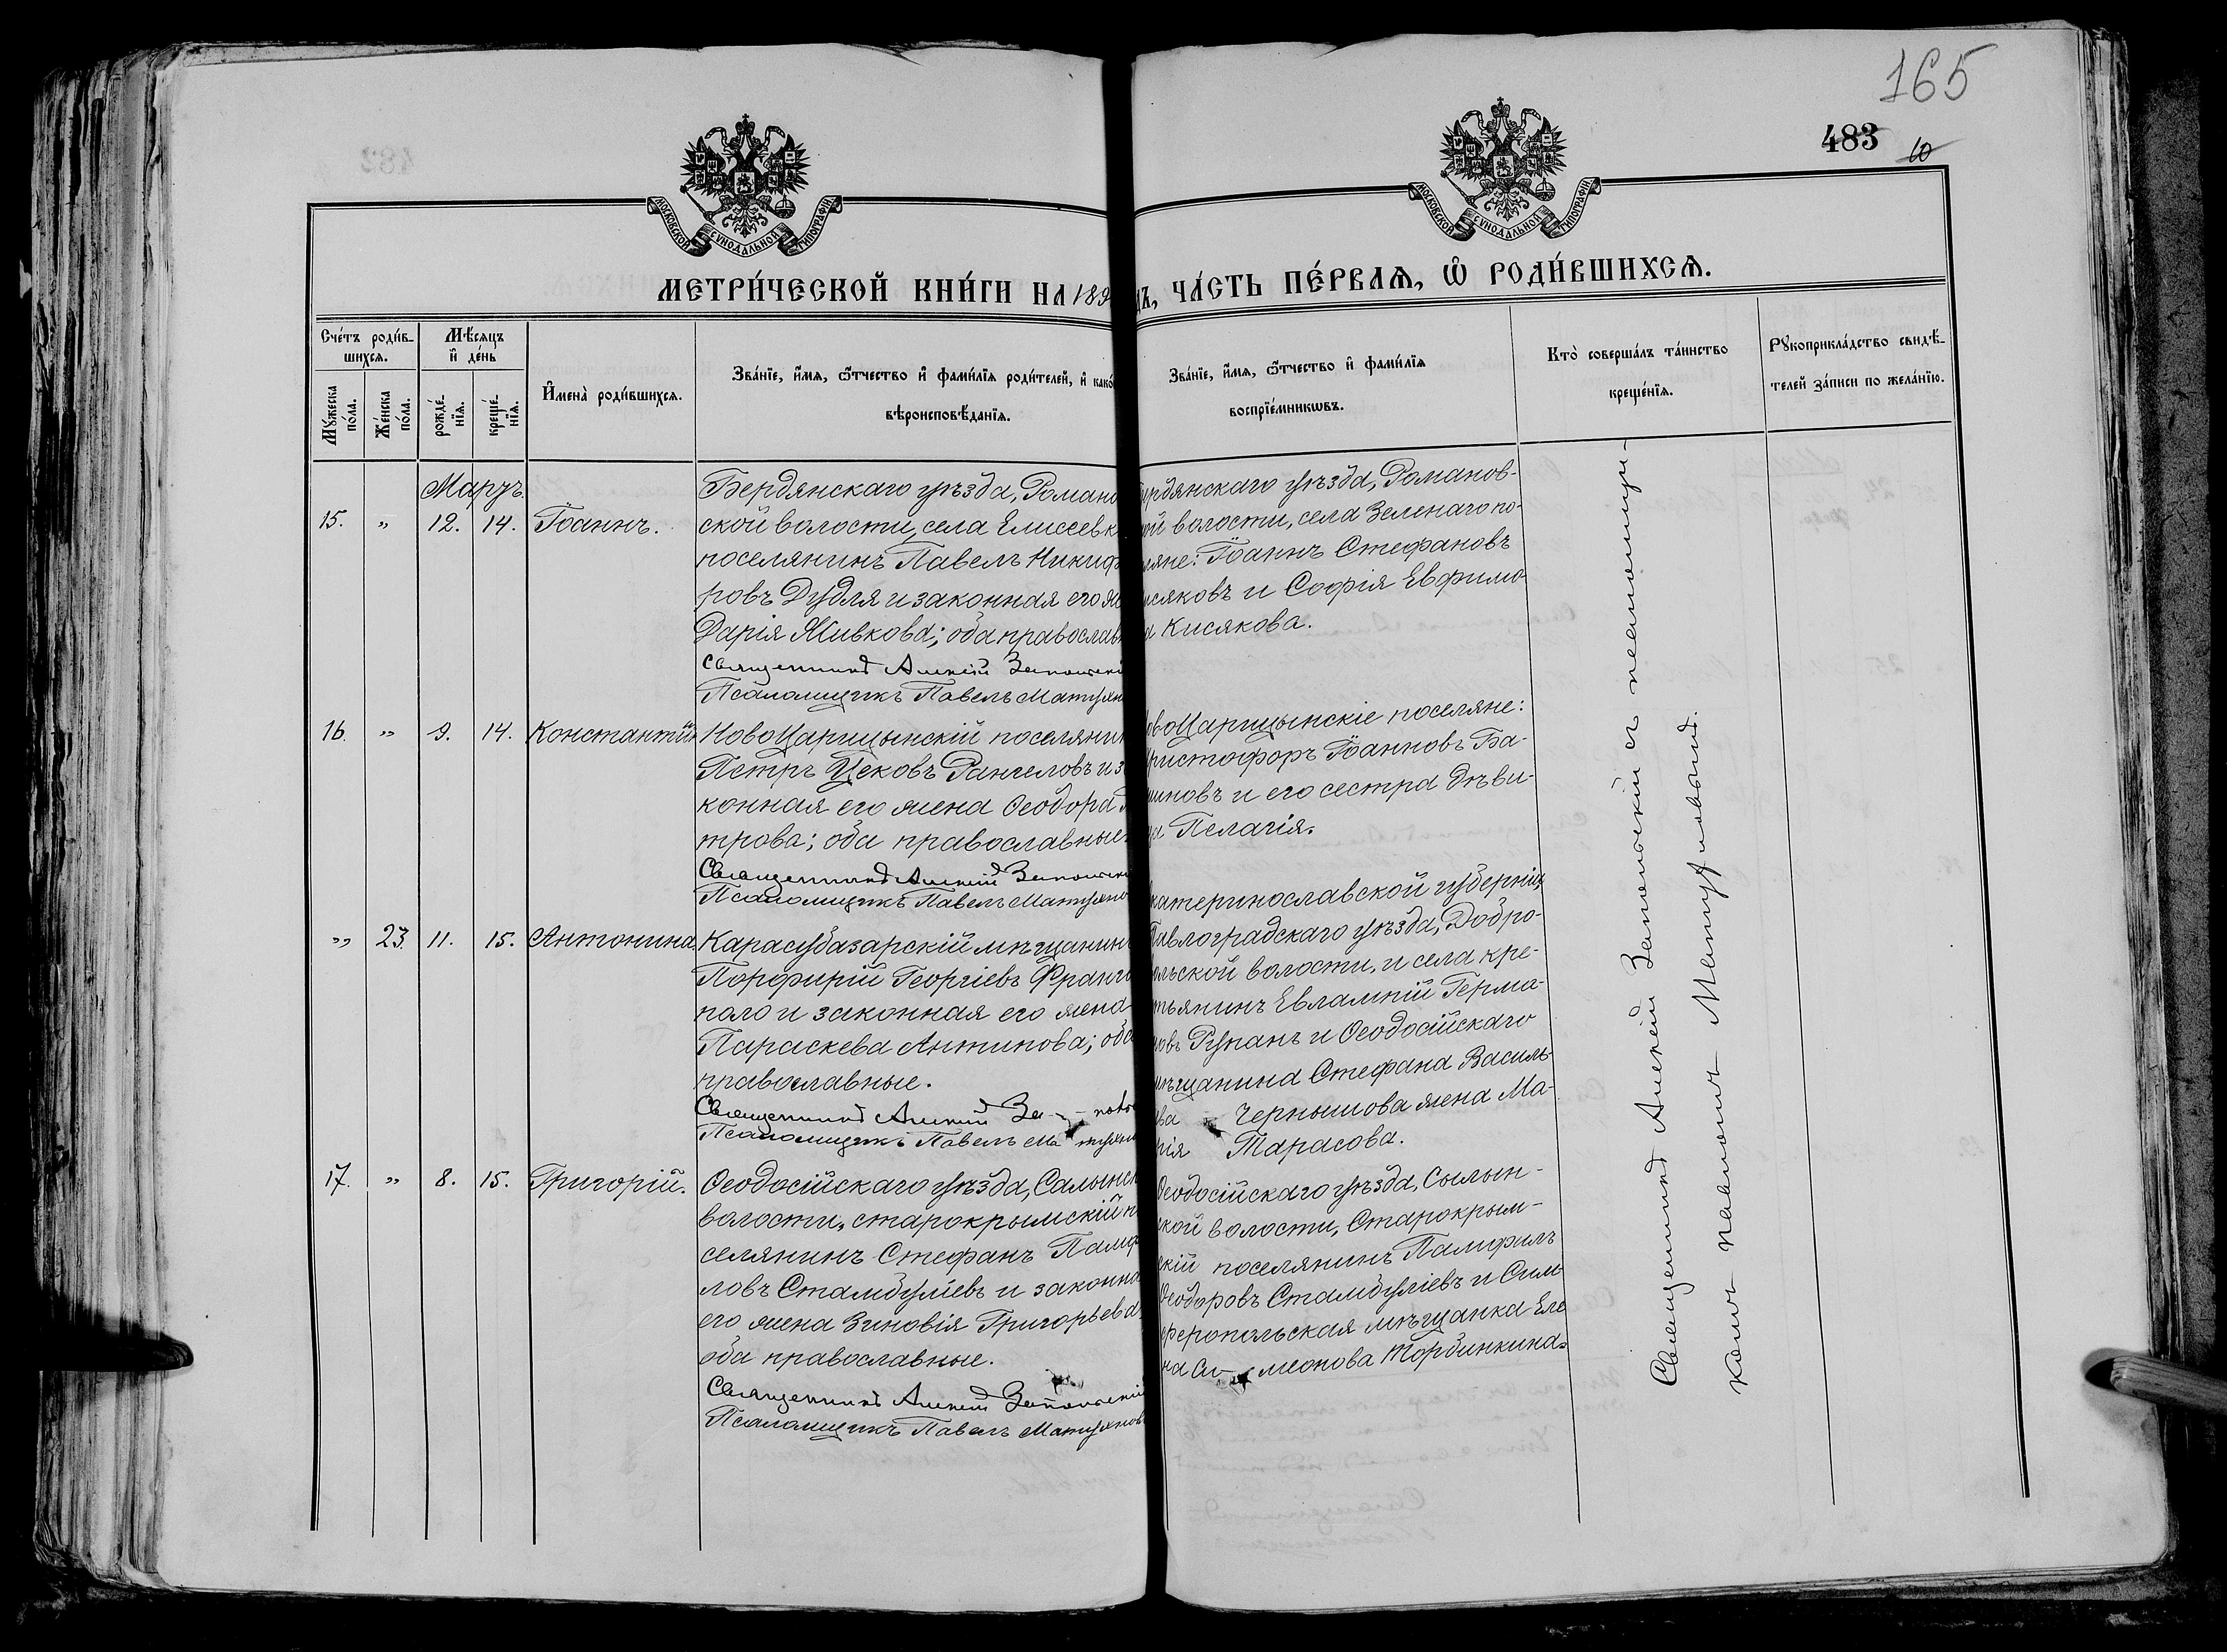 165
483
10
МОСКОВСКОЙ СУНОДАЛЬНОЙ ТИПОГРАФІИ
МОСКОВСКОЙ СУНОДАЛЬНОЙ ТИПОГРАФІИ
МЕТРИ́ЧЕСКОЙ КНИ́ГИ НА 189
ДЪ, ЧА́СТЬ ПЕ́РВАѦ, Ѽ РОДИ́ВШИХСѦ.
Сче́тъ роди́в-
шихсѧ.
Мꙋ́жеска по́ла.
Же́нска по́ла.
Мѣ́сѧцъ и҆ де́нь
рожде́-нїѧ.
креще́-нїѧ.
И҆мена̀ роди́вшихсѧ.
Зва́нїе, и҆́мѧ, ѻ҆́тчество и҆ фами́лїѧ роди́телей, и҆ како́
вѣроисповѣ́данїѧ.
Зва́нїе, и҆́мѧ, ѻ҆́тчество и҆ фами́лїѧ
воспрїе́мникѡвъ.
Кто̀ соверша́лъ та́инство
креще́нїѧ.
Рꙋкоприкла́дство свидѣ́-
телей за́писи по жела́нїю.
Мартъ
15. „ 12. 14. Іоаннъ.
Бердянскаго уѣзда, Романо
ской волости, села Елисеевк
поселянинъ Павелъ Никиф
ровъ Дудля и законная его же
Дарія Живкова; оба православ
Священникъ Алексій Запольскі
Псаломщикъ Павелъ Матухн
рдянскаго уѣзда, Романов-
ой волости, села Зеленаго по-
ляне: Іоаннъ Стефановъ
исяковъ и Софія Евфимо-
а Кисякова.
16. „ 9. 14. Константинъ
НовоЦарицынскій поселянин
Петръ Цековъ Рангеловъ и за
конная его жена Ѳеодора
трова; оба православные.
Священникъ Алексій Запольскі
Псаломщикъ Павелъ Матухно
овоЦарицынскіе поселяне:
ристофоръ Іоанновъ Ба-
иновъ и его сестра дѣви-
ца Пелагія.
„ 23. 11. 15. Антонина
Карасубазарскій мѣщанин
Порфирій Георгіевъ Франго
поло и законная его жена
Параскева Антипова; оба
православные.
Священникъ Алексій За-поль
Псаломщикъ Павелъ Матухн
катеринославской губерніи,
Павлоградскаго уѣзда, Добро-
ольской волости, и села кре-
тьянинъ Евлампій Герма-
новъ Рупанъ и Ѳеодосійскаго
мѣщанина Стефана Василь-
ева Чернышова жена Ма-
рія Тарасова.
17. „ 8. 15. Григорій.
Ѳеодосійскаго уѣзда, Салынск
волости, старокрымскій п
селянинъ Стефанъ Памф
ловъ Стамбуліевъ и законна
его жена Зиновія Григорьева
оба православные.
Священникъ Алексій Запольскій
Псаломщикъ Павелъ Матухнов
Ѳеодосійскаго уѣзда, Салын-
ской волости, Старокрым-
скій поселянинъ Памфилъ
Ѳеодоровъ Стамбуліевъ и Сим-
феропольская мѣщанка Еле
на Си-меонова Торбинкина.
Священникъ Алексій Запольскій съ псаломщи-
комъ Павломъ Матухновымъ.